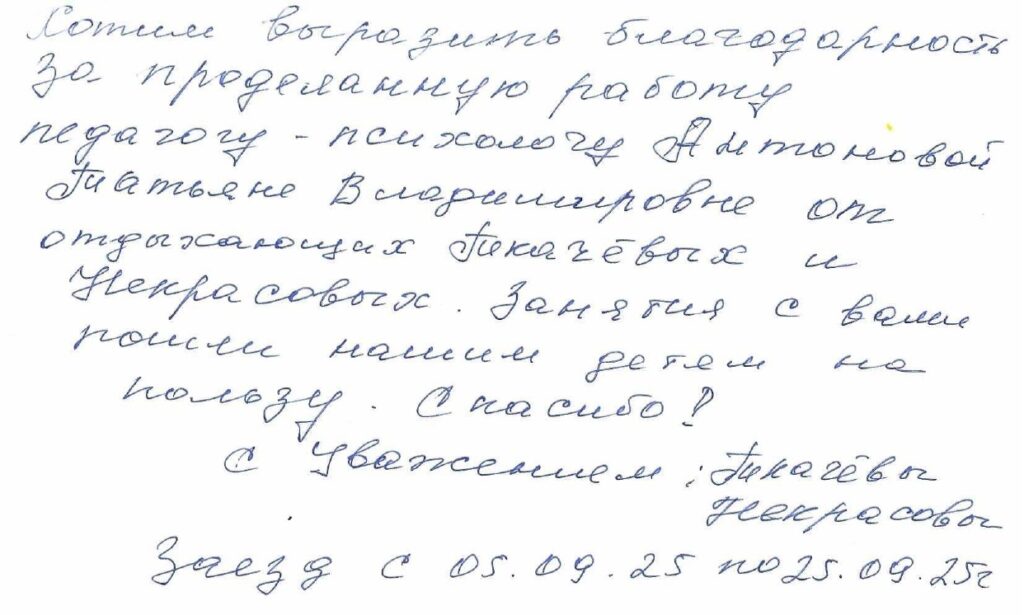 Хотим выразить благодарность
за проделанную работу
педагогу - психологу Антоновой
Татьяне Владимировне от
отдыхающих Ткачёвых и
Некрасовых. Занятия с вами
пошли нашим детям на
пользу. Спасибо!
С уважением; Ткачёвы
Некрасовы
Заезд с 05.09.25 по 25.09.25г